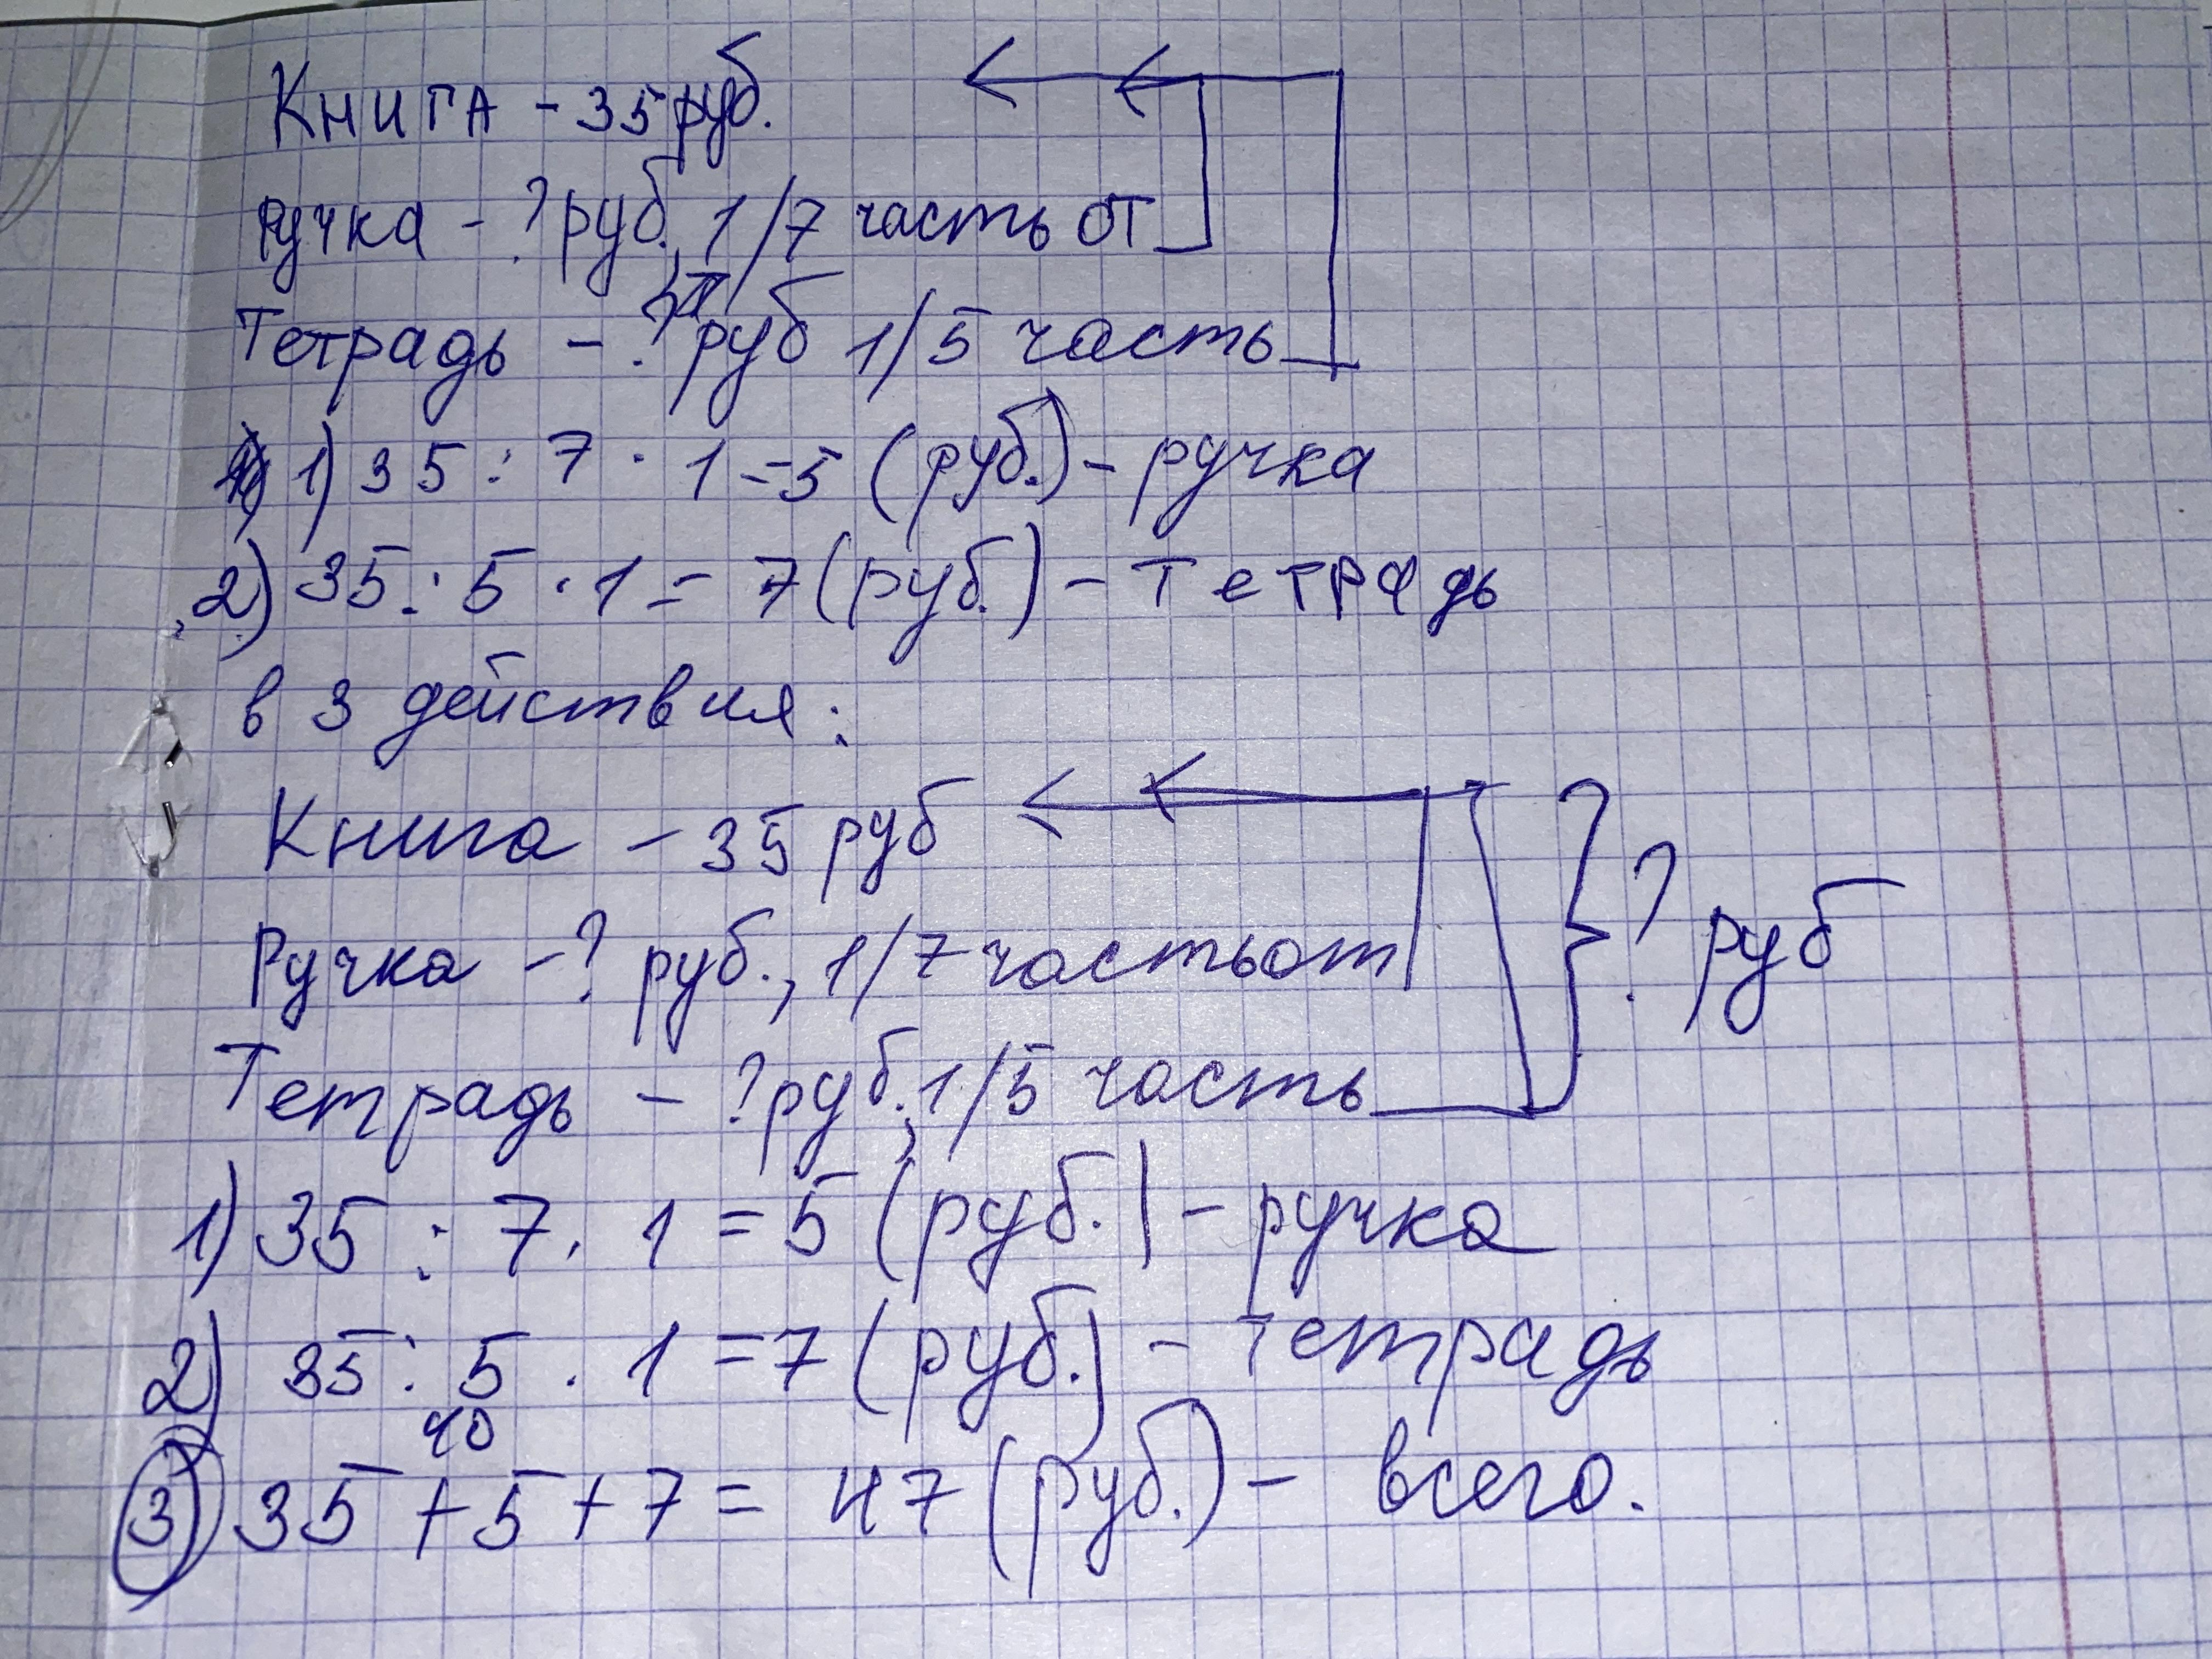 Книга - 35 руб.
ручка - ? руб., 1/7 часть от
Тетрадь - ? руб 1/5 часть
1) 35 : 7 · 1 = 5 (руб.) - ручка
2) 35 : 5 · 1 = 7 (руб.) - тетрадь
в 3 действия:
Книга - 35 руб
Ручка - ? руб., 1/7 часть от
? руб
Тетрадь - ? руб., 1/5 часть
1) 35 : 7 · 1 = 5 (руб.) - ручка
2) 35 : 5 · 1 = 7 (руб.) - тетрадь
40
3) 35 + 5 + 7 = 47 (руб.) - всего.